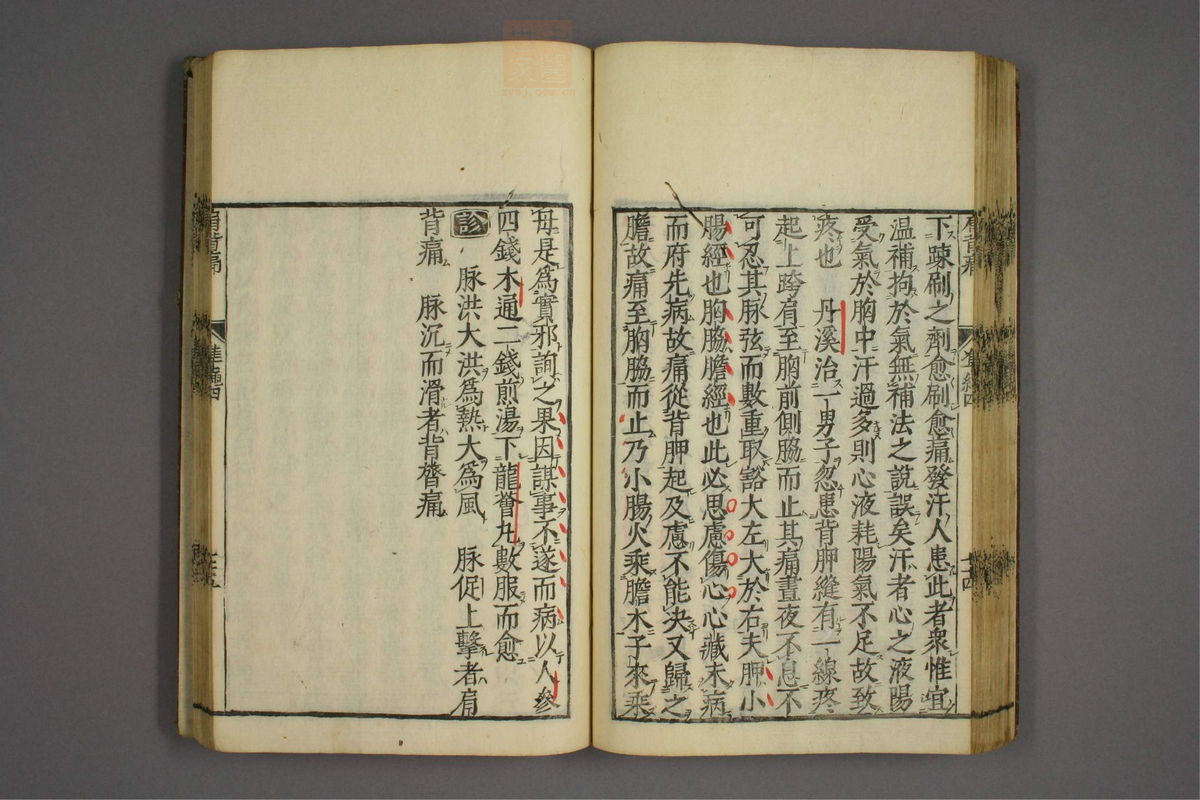 下踈刷之劑愈刷愈痛發汗人患此者衆惟宜
温補拘於氣無補法之說誤矣汗者心之液陽
受氣於胸中汗過多則心液耗陽氣不足故致
疼也　丹溪治一男子忽患背胛縫有一線疼
起上跨肩至胸前側脇而止其痛晝夜不息不
可忍其脉弦而數重取豁大左大於右夫胛小
腸經也胸脇膽經也此必思慮傷心心藏未病
而府先病故痛從背胛起及慮不能决又歸之
膽故痛至胸脇而止乃小腸火乘膽木子來乘
母是爲實邪詢之果因謀事不遂而病以人參
四錢木通二錢煎湯下龍薈丸數服而愈
診　脉洪大洪爲熱大爲風　脉促上擊者肩
背痛　脉沉而滑者背膂痛
肩背痛